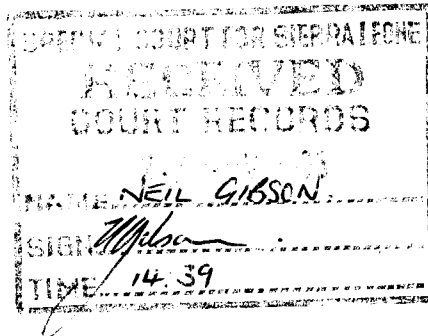 SPECIAL COURT FOR SIERRA LEONE
RECEIVED
COURT RECORDS
NAME NEIL GIBSON
SIGN NGibson
TIME 14:39